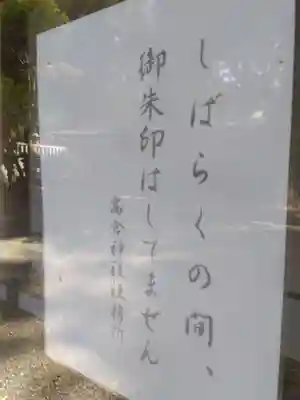 しばらくの間、
御朱印はしてません
高倉神社社務所